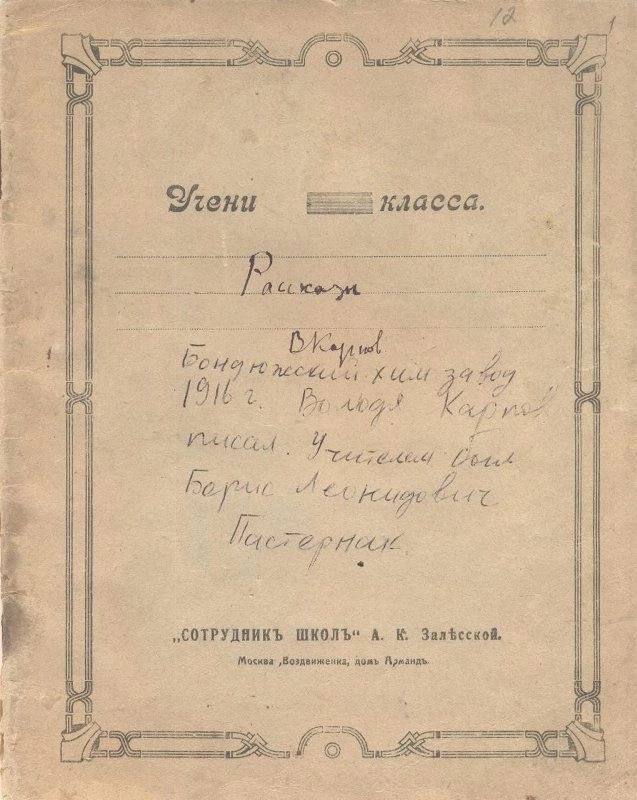 12
1
Учени класса.
Рассказы
ВКарпов
Бондюжский хим завод
1916 г. Володя Карпов
писал. Учителем был
Борис Леонидович
Пастернак.
„СОТРУДНИКЪ ШКОЛЪ“ А. К. Залѣсской.
Москва, Воздвиженка, домъ Армандъ.